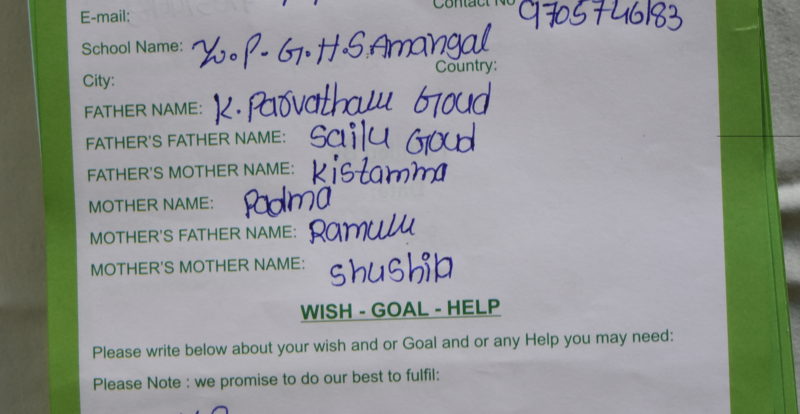 E-mail:
Contact No 9705746183
School Name: Z.P.G.H.S.Amangal
City: Country:
FATHER NAME: K. Parvathalu Goud
FATHER'S FATHER NAME: Sailu Goud
FATHER'S MOTHER NAME: Kistamma
MOTHER NAME: Padma
MOTHER'S FATHER NAME: Ramulu
MOTHER'S MOTHER NAME:
WISH - GOAL - HELP
Please write below about your wish and or Goal and or any Help you may need:
Please Note : we promise to do our best to fulfil: